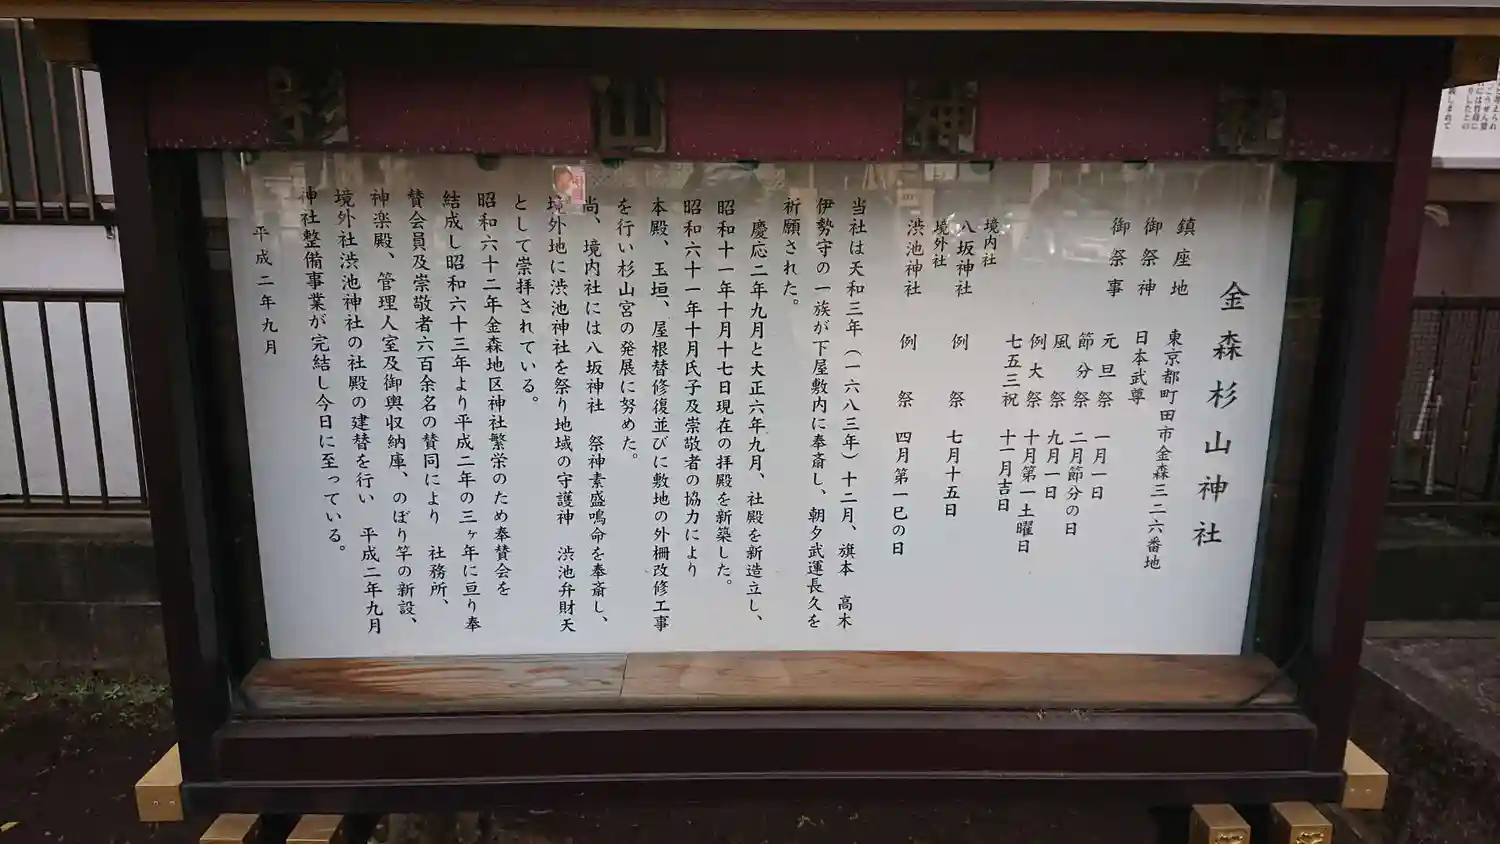 杉山神社
金森杉山神社
鎮座地 東京都町田市金森三二六番地
御祭神 日本武尊
御祭事 元旦祭 一月一日
節分祭 二月節分の日
風祭 九月一日
例大祭 十月第一土曜日
七五三祝 十一月吉日
境内社
八坂神社 例祭 七月十五日
境外社
渋池神社 例祭 四月第一巳の日
当社は天和三年(一六八三年)十二月、旗本 高木
伊勢守の一族が下屋敷内に奉斎し、朝夕武運長久を
祈願された。
慶応二年九月と大正六年九月、社殿を新造立し、
昭和十一年十月十七日現在の拝殿を新築した。
昭和六十一年十月氏子及崇敬者の協力により
本殿、玉垣、屋根替修復並びに敷地の外柵改修工事
を行い杉山宮の発展に努めた。
尚、境内社には八坂神社 祭神素盛鳴命を奉斎し、
境外地に渋池神社を祭り地域の守護神 渋池弁財天
として崇拝されている。
昭和六十二年金森地区神社繁栄のため奉賛会を
結成し昭和六十三年より平成二年の三ヶ年に亘り奉
賛会員及崇敬者六百余名の賛同により 社務所、
神楽殿、管理人室及御輿収納庫、のぼり竿の新設、
境外社渋池神社の社殿の建替を行い 平成二年九月
神社整備事業が完結し今日に至っている。
平成二年九月